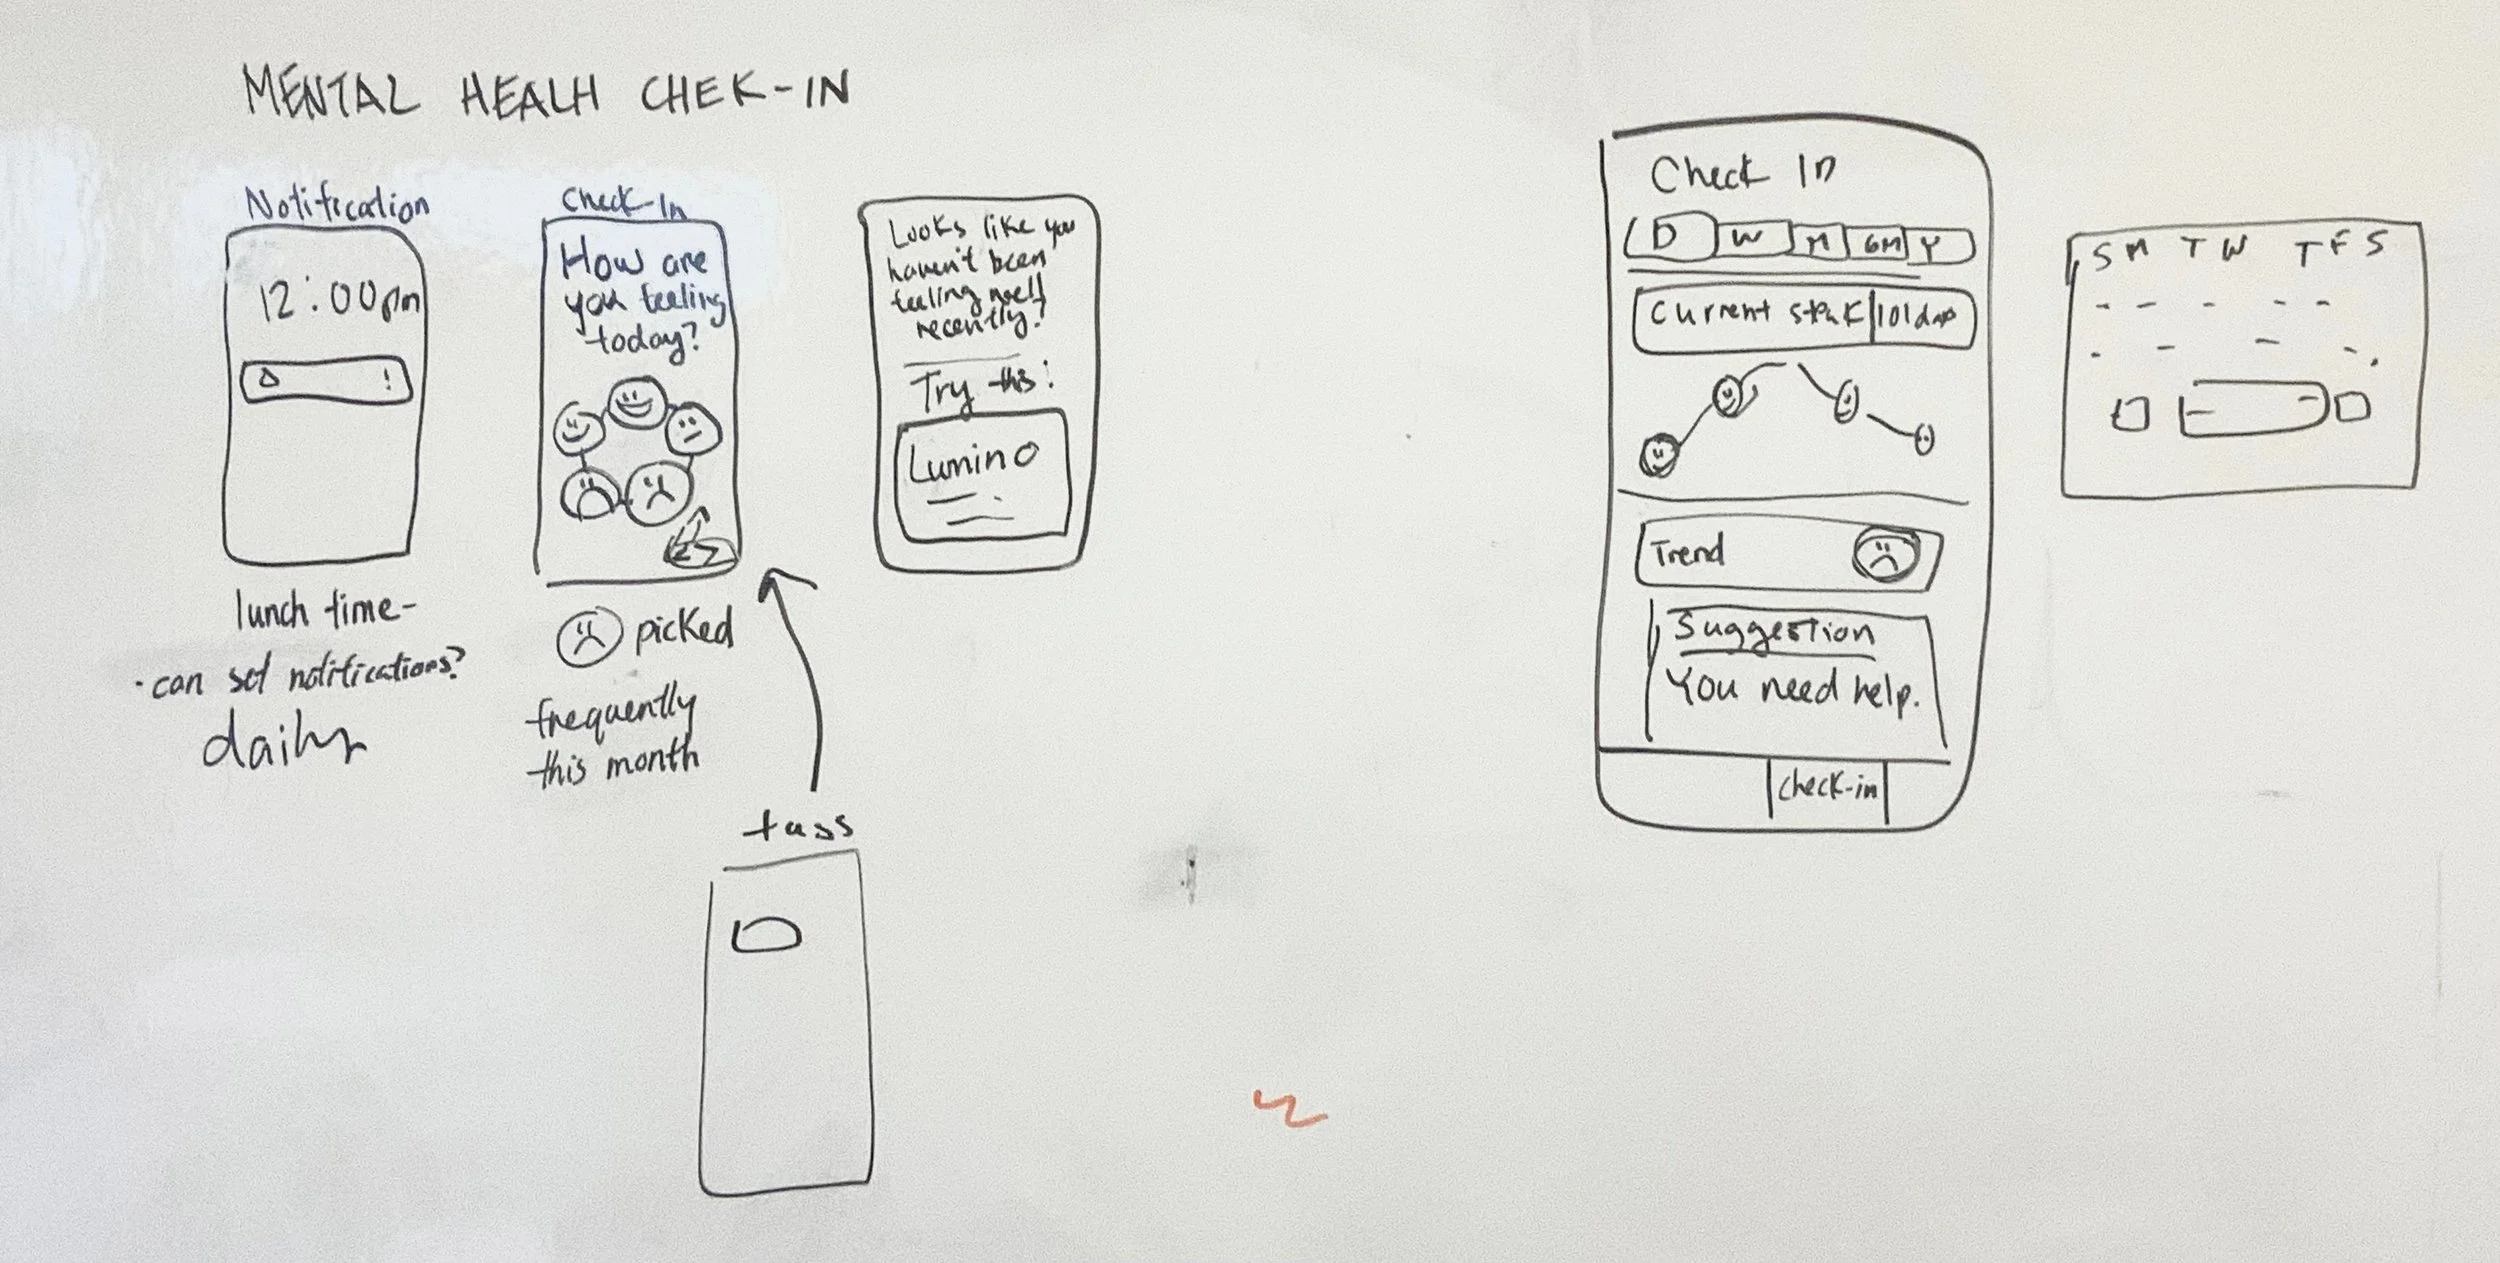 MENTAL HEALH CHEK-IN
Notification
12:00pm
!
lunch time-
·can set notifications?
daily
Check-In
How are
you feeling
today?
picked
frequently
this month
Looks like you
haven't been
feeling well
recently!
Try this:
Lumino
Check In
D W M 6M Y
Current 101
Trend
Suggestion
You need help.
Check-in
S M T W T F S